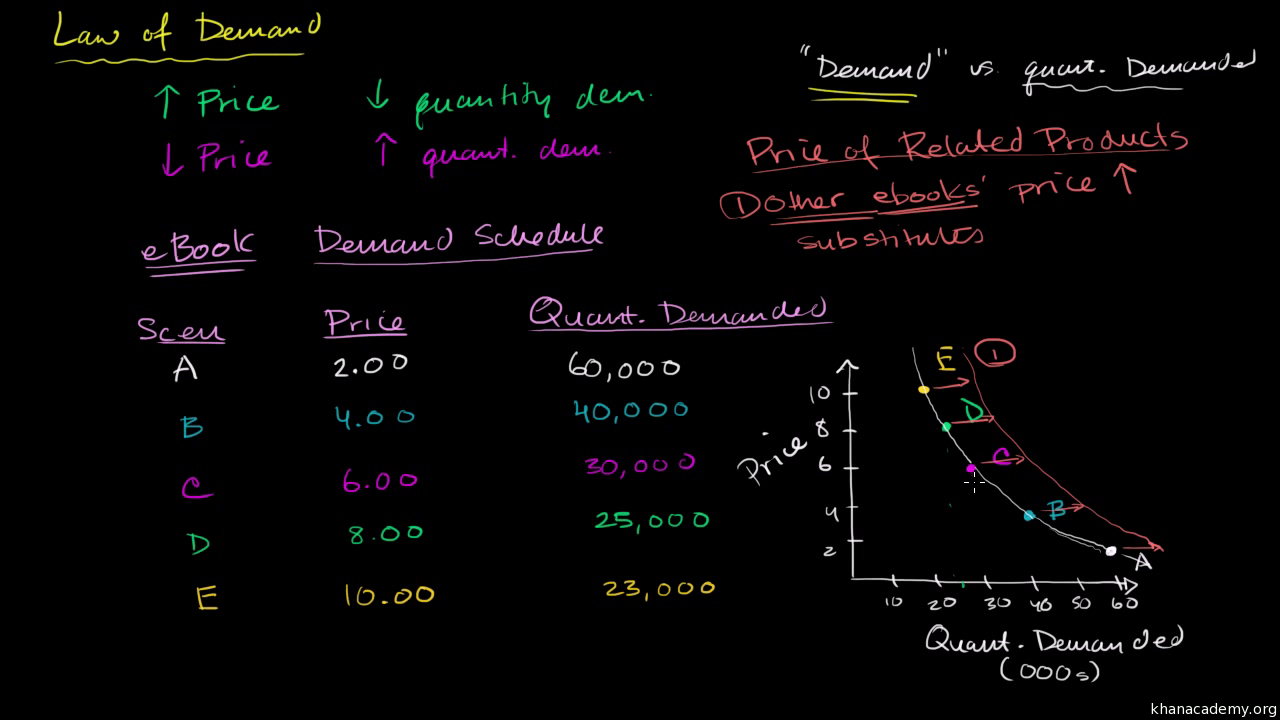 Law of Demand
↑ Price ↓ quantity dem.
↓ Price ↑ quant. dem.
"Demand" vs. quant. Demanded
Price of Related Products
① other ebooks' price ↑
substitutes
eBook Demand Schedule
Scen Price Quant. Demanded
A 2.00 60,000
B 4.00 40,000
C 6.00 30,000
D 8.00 25,000
E 10.00 23,000
E ①
10
D
8
Price
6 C
4 B
2
A
10 20 30 40 50 60
Quant. Demanded
(000s)
khanacademy.org